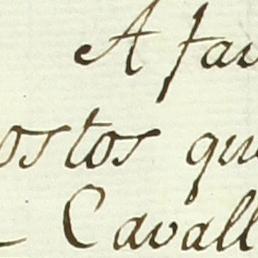 A fav
ostos qu
Cavall